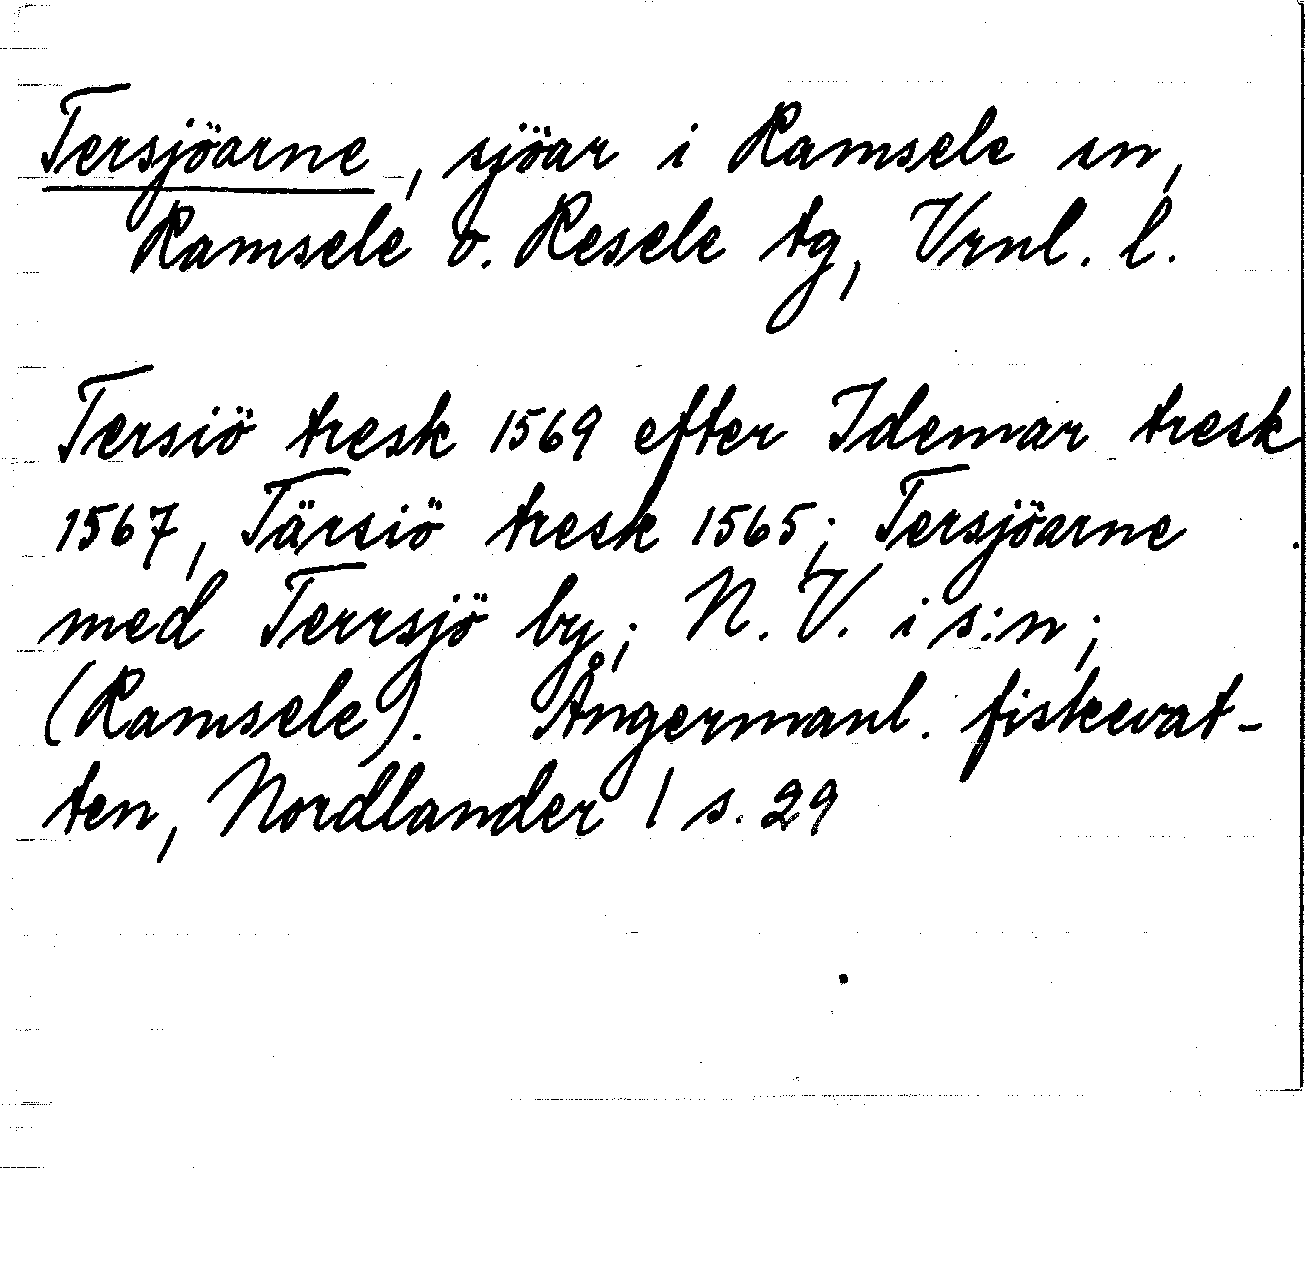 Tersjöarne, sjöar i Ramsele sn,
Ramsele o. Resele tg, Vrnl. l.
Tersiö tresk 1569 efter Idemar tresk
1567, Tärsiö tresk 1565; Tersjöarne
med Terrsjö by; N. V. i s:n;
(Ramsele). Ångermanl. fiskevat-
ten, Nordlander 1 s. 29